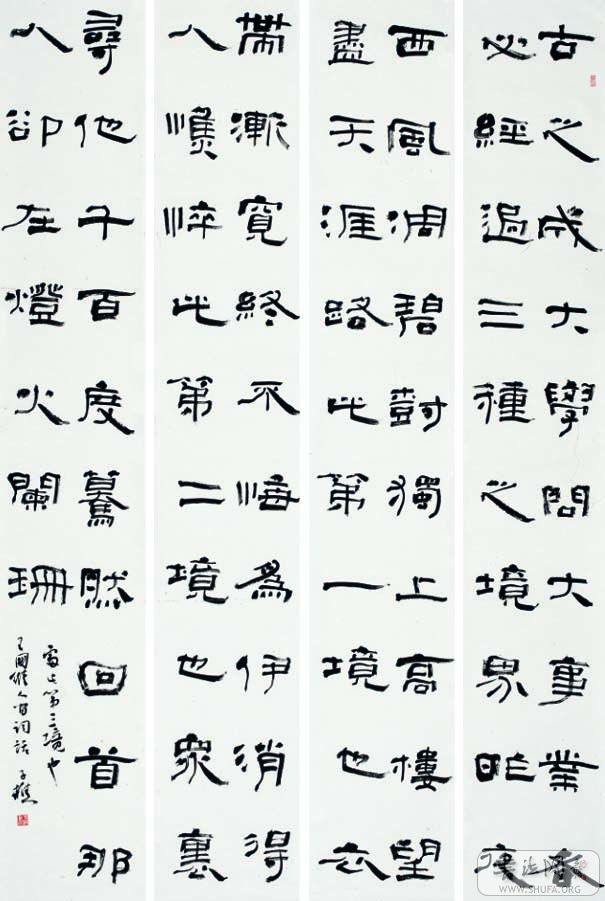 古之成大學問大事業者
必經過三種之境界昨夜
西風凋碧樹獨上高樓望
盡天涯路此第一境也衣
帶漸寬終不悔爲伊消得
人憔悴此第二境也眾裏
尋他千百度驀然回首那
人卻在燈火闌珊
處此第三境也
王國維人間詞話
WWW.SHUFA.ORG